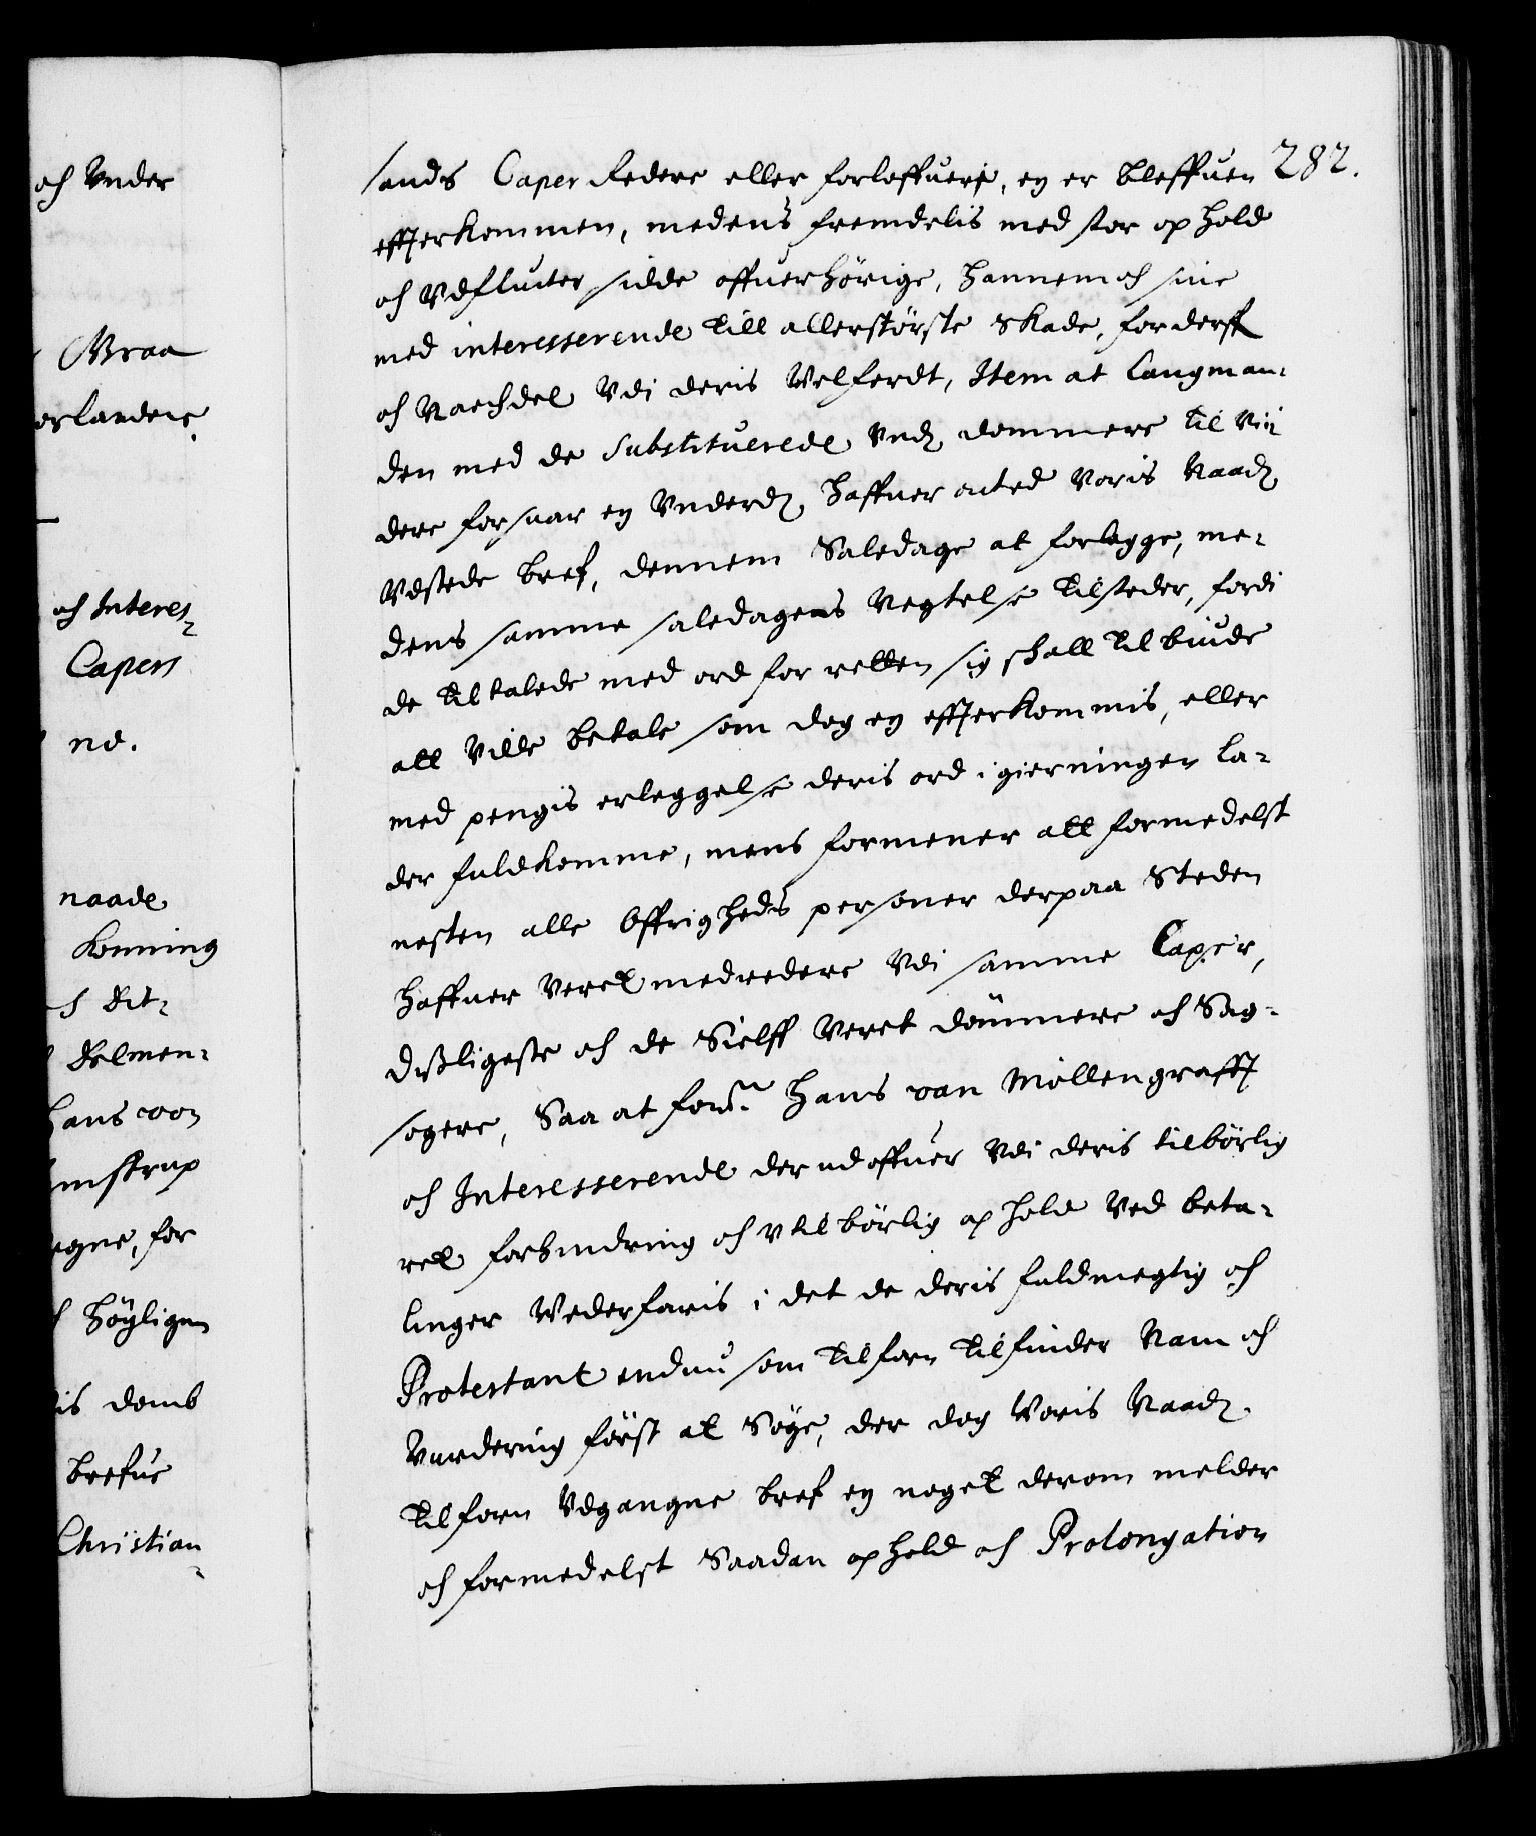 och Vnder
Wraa
orlandere
och Interes-
Capers
ne.
naade
Konning
och Dit-
Delmen-
hans von
mstrup
egne, for
och höyligen
is domb
brefue
Christian-
282.
sands Caper Redere eller forloffuere, ey er bleffuen
effterkommen, medens fremdelis med stor ophold
och Vdflucter sidde offuerhörige, hannem och sine
med interesserende till allerstörste skade, forderff
och Nachdel Vdi deris Velferdt, Item at Laugman-
den med de substituerede Vndr dommere til Vii-
dere forsuar ey Vnderdr. haffuer anted Voris Naadr
Vdstede bref, dennem Faledage at forlegge, me-
dens samme faledagens Negtelse tilsteder, fordi
de tiltalede med ord for retten sig schall tilbiude
att Ville betale som dog ey effterkommis, eller
med pengis erleggelse deris ord i gierningen la-
der fuldkomme, mens formener att formedelst
nesten alle Öffrigheds personer derpaa Steden
haffuer Veret medredere Vdi samme Caper,
disligeste och de Sielff Veret dommere och Sag-
sögere, Saa at forn: Hans van Möllengrafft
och Interesserende derudoffuer Vdi deris tilbörlig
ret forhindring och vtilbörlig ophold Ved beta-
linger Vederfaris i det de deris fuldmegtig och
Protestant endnu som tilforn tilfinder Nam och
Vurdering först at Söge, der dog Voris Naadr
tilforn Vdgangne bref ey noget derom melder
och formedelst Saadan ophold och Prolongation